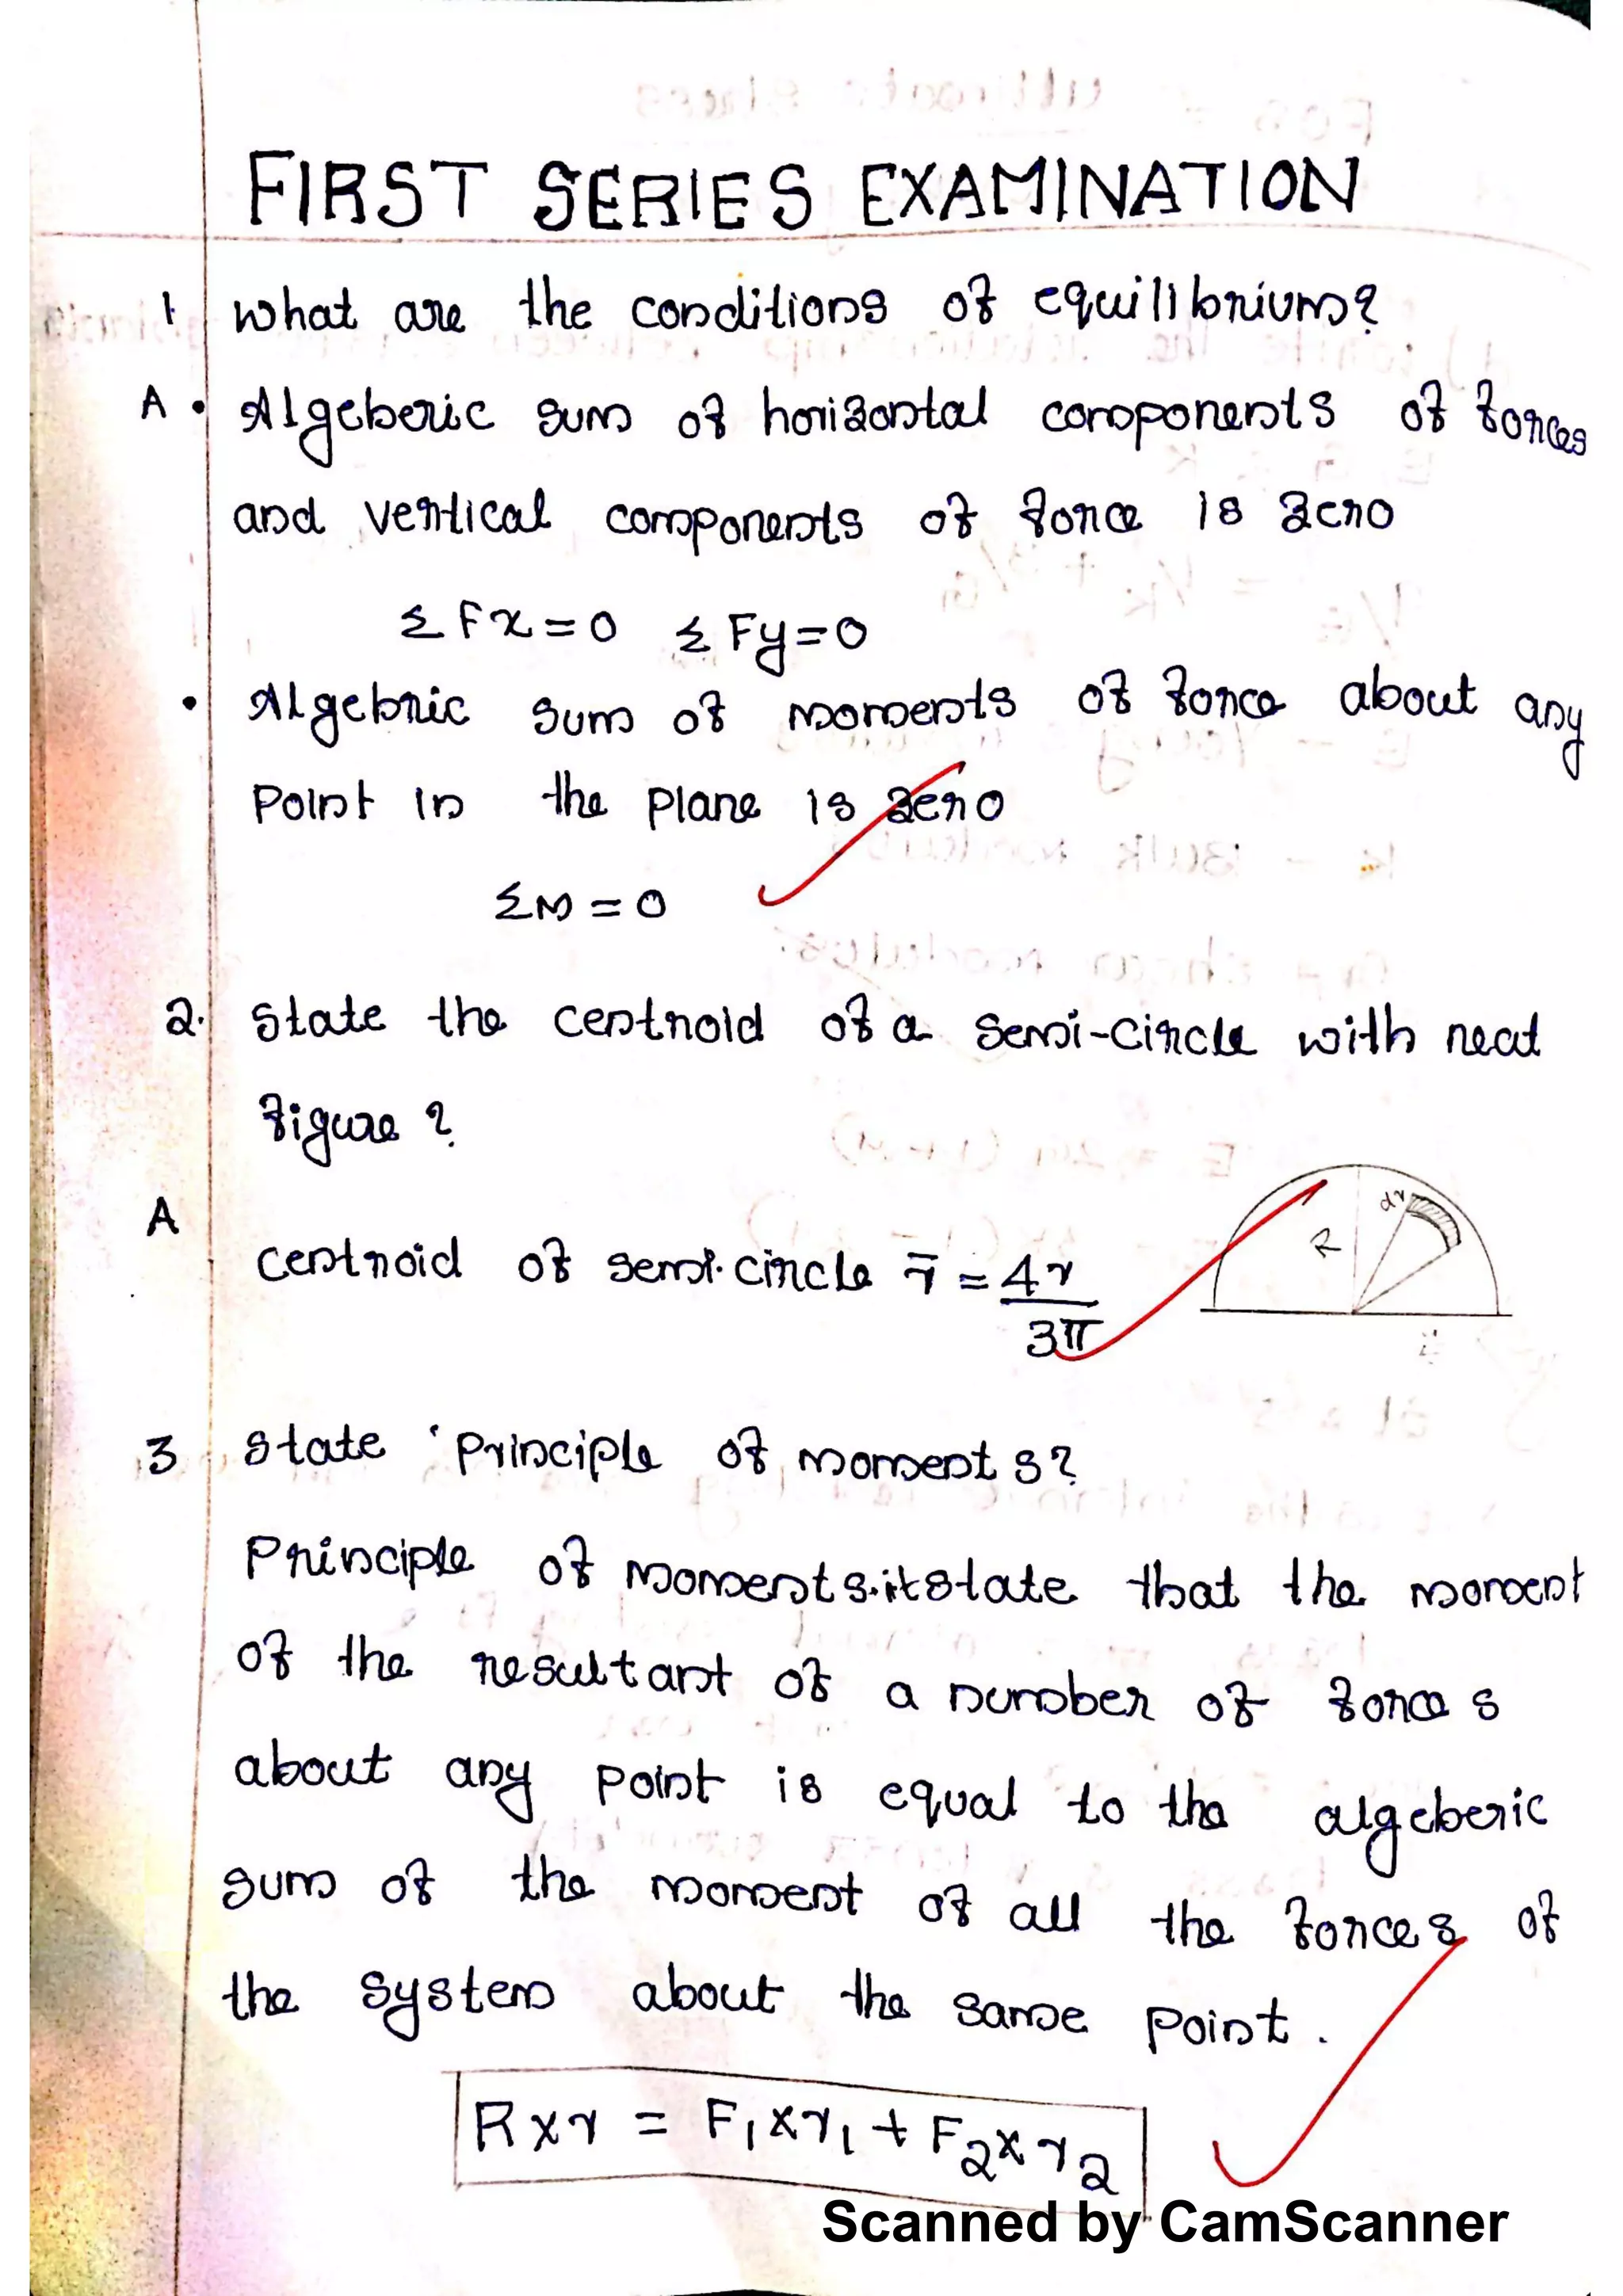 FIRST SERIES EXAMINATION
1 What are the conditions of equilibrium?
A • Algeberic sum of horizontal components of forces
and vertical components of force is zero
Σ Fx = 0 Σ Fy = 0
• Algebric sum of moments of force about any
Point in the plane is zero
ΣM = 0
2. State the centroid of a semi-circle with neat
figure ?
A
Centroid of semi.circle r̄ = 4r
3π
dr
R
3 State 'Principle of moments?
Principle of moments.it state that the moment
of the resultant of a number of forces
about any point is equal to the algeberic
sum of the moment of all the forces of
the system about the same point.
R x r = F1 x r1 + F2 x r2
Scanned by CamScanner